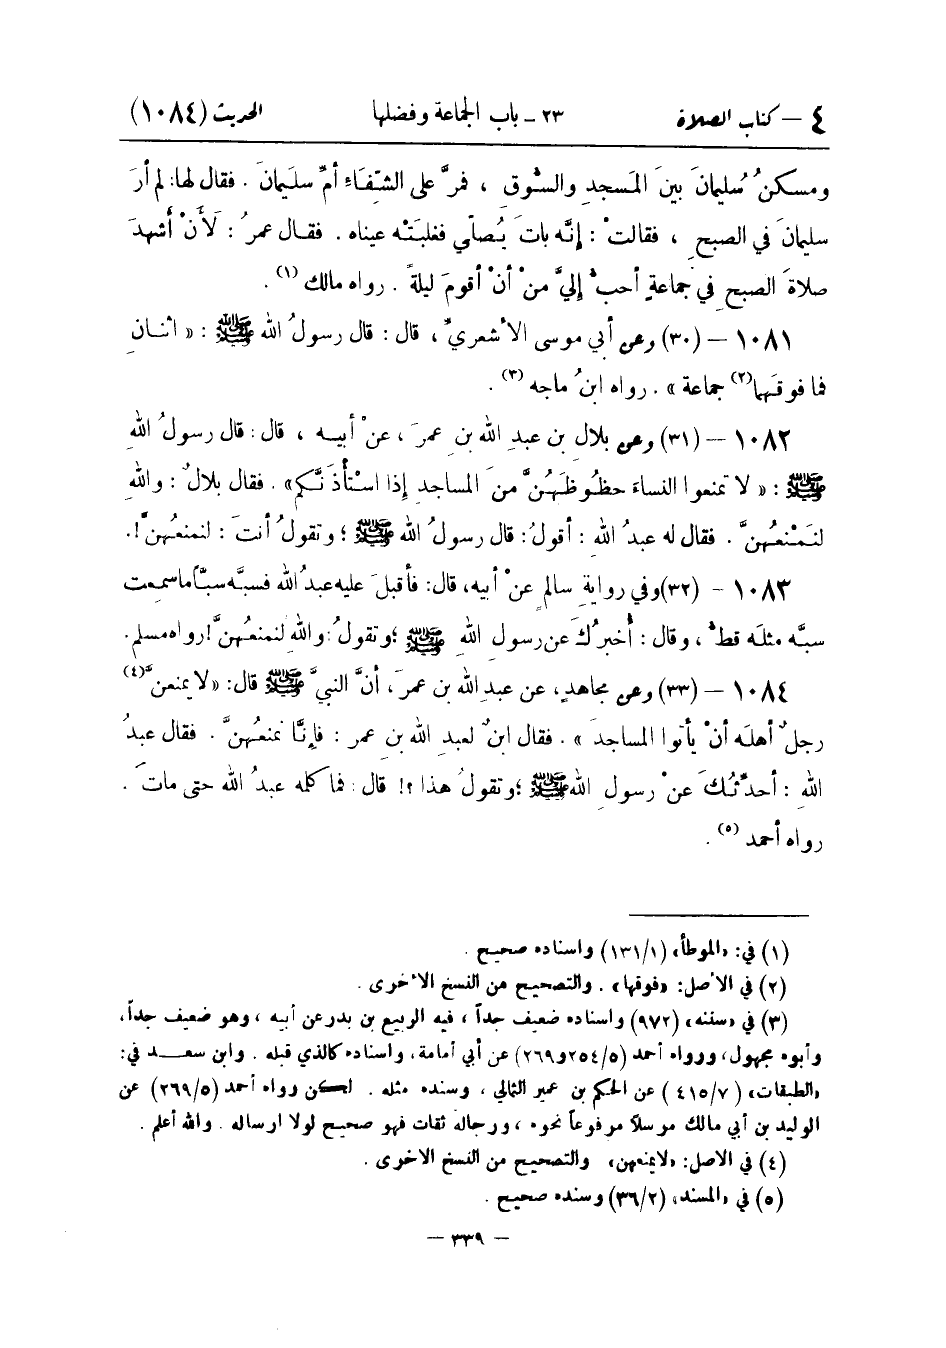 ٤ – كتاب الصلاة ٢٣ – باب الجماعة وفضلها الحديث (١٠٨٤)
ومسكنُ سُليمانَ بينَ المَسجدِ والسُّوق ، فمرَّ على الشِّفَاءِ أمِّ سليمانَ . فقال لها: لم أرَ
سليمانَ في الصبحِ ، فقالتْ : إنَّه باتَ يُصلّي فغلبَتْه عيناه . فقـال عمرُ : لَأنْ أشهدَ
صلاةَ الصبح في جماعةٍ أحبُّ إليَّ منْ أنْ أقومَ ليلةً . رواه مالك (١) .
١٠٨١ – (٣٠) وعن أبي موسى الأشعريِّ ، قال : قال رسولُ الله ﷺ : « اثنـانِ
فما فوقَـهما (٢) جماعة » . رواه ابنُ ماجه (٣) .
١٠٨٢ – (٣١) وعن بلالِ بن عبدِ الله بن عمرَ ، عنْ أبيـه ، قال : قال رسولُ اللهِ
ﷺ : « لا تمنعوا النساءَ حظُوظَهُنَّ منَ المساجدِ إذا اسْتأْذَنَّكم» . فقال بلالٌ : واللهِ
لنَمْنعُهنَّ . فقال له عبدُ الله : أقولُ : قال رسولُ الله ﷺ ؛ وتقولُ أنتَ : لنمنعُهنَّ !.
١٠٨٣ – (٣٢) وفي روايةِ سالمٍ عنْ أبيه ، قال: فأقبلَ عليه عبدُ الله فسبَّه سبّاً ما سمعت
سبَّه مثلَه قطُّ ، وقال : أُخبرُكَ عن رسولِ اللهِ ﷺ ؛ وتقولُ : واللهِ لنمنعُهنَّ ! رواه مسلم.
١٠٨٤ – (٣٣) وعن مجاهدٍ ، عن عبدِ الله بن عمرَ ، أنَّ النبيَّ ﷺ قال: «لا يمنعنَّ (٤)
رجلٌ أهلَه أنْ يأتوا المساجدَ » . فقال ابنٌ لعبدِ اللهِ بن عمر : فإنَّا نمنعُهنَّ . فقال عبدُ
اللهِ : أحدِّثُـكَ عنْ رسولِ اللهِ ﷺ ؛ وتقولُ هذا ؟! قال : فما كلمه عبدُ الله حتى ماتَ .
رواه أحمد (٥) .
(١) في: «الموطأ» (١/ ١٣١) واسناده صحيح .
(٢) في الأصل: «فوقها» . والتصحيح من النسخ الأخرى .
(٣) في «سننه» (٩٧٢) واسناده ضعيف جداً ، فيه الربيع بن بدر عن أبيه ، وهو ضعيف جداً،
وأبوه مجهول، وورواه أحمد (٥/ ٢٥٤ و٢٦٩) عن أبي أمامة، واسناده كالذي قبله . وابن سعـــد في:
«الطبقات» (٧/ ٤١٥) عن الحكم بن عمير الثمالي ، وسنده مثله . لكـن رواه أحمد (٥/ ٢٦٩) عن
الوليد بن أبي مالك مرسلاً مرفوعاً نحوه ، ورجاله ثقات فهو صحيح لولا ارساله . والله أعلم .
(٤) في الاصل: «لايمنعهن» والتصحيح من النسخ الاخرى .
(٥) في «المسند» (٢/ ٣٦) وسنده صحيح .
– ٣٣٩ –